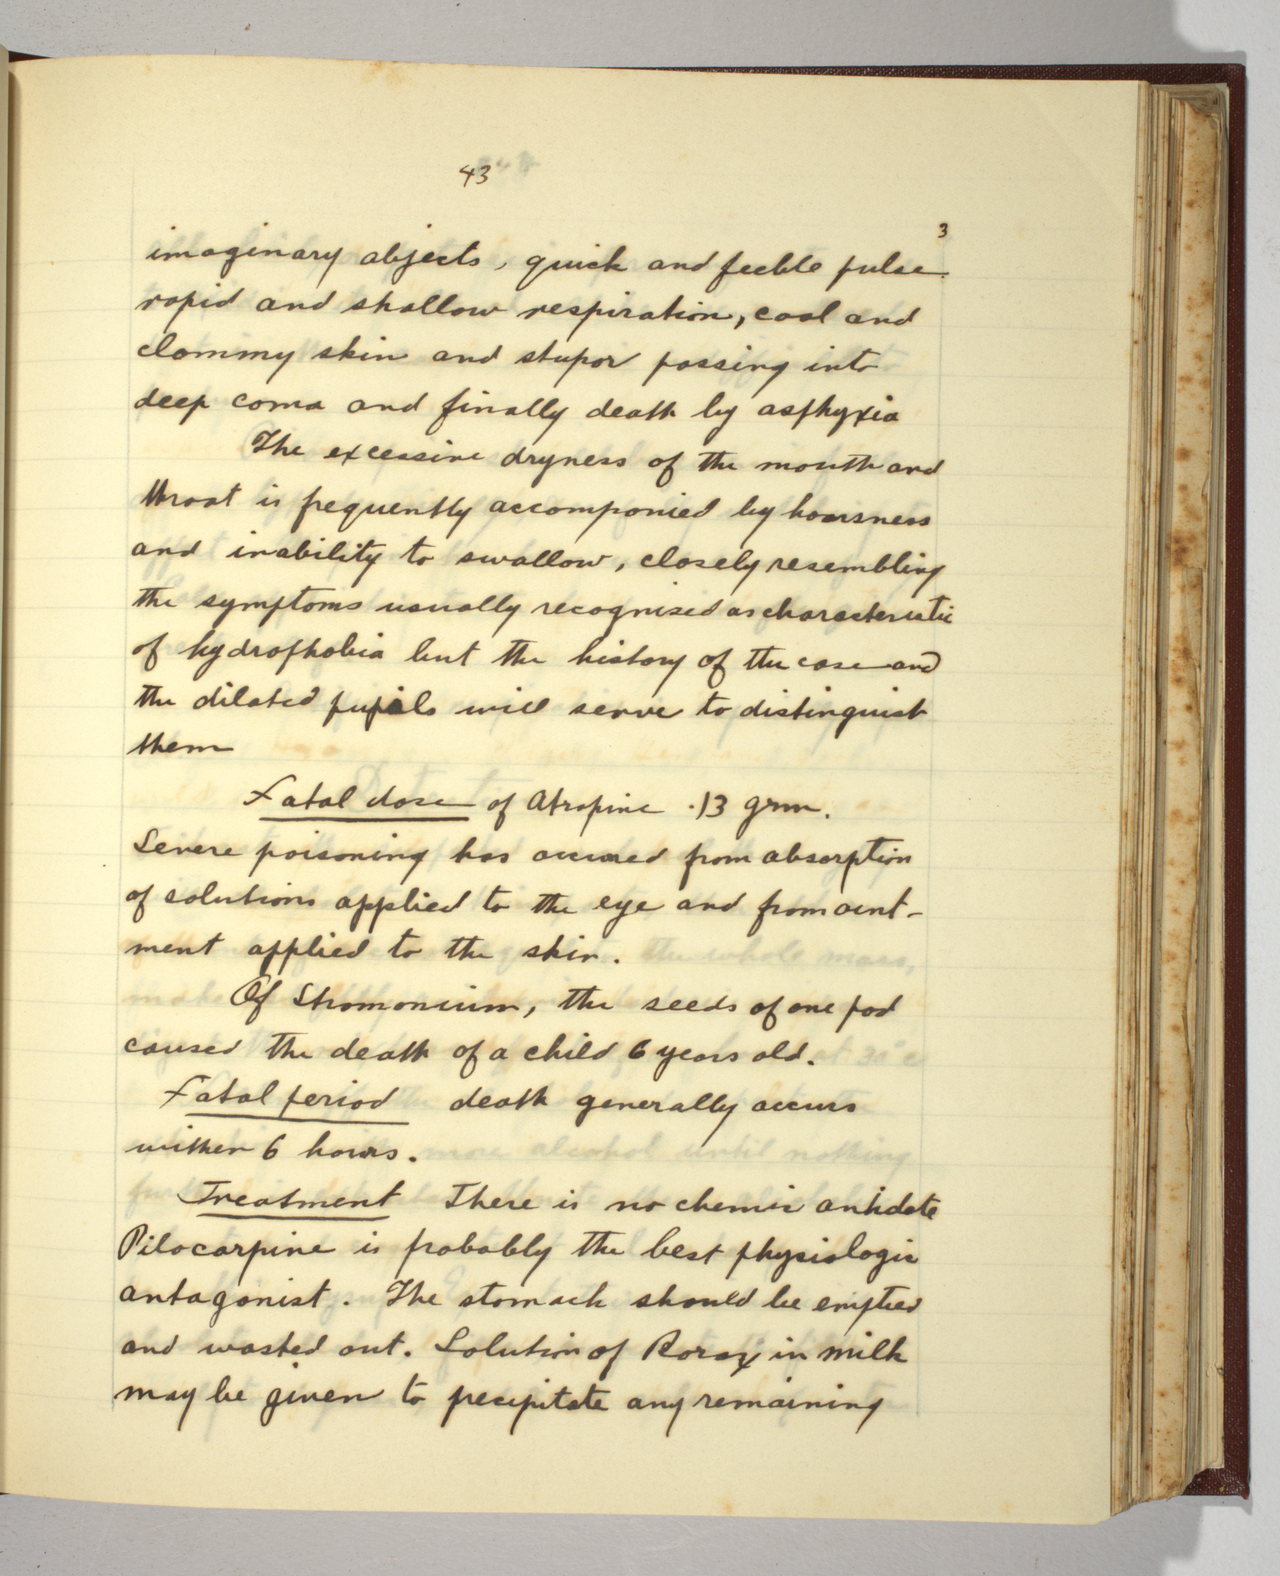 43
3
imaginary objects, quick and feeble pulse.
rapid and shallow respiration, cool and
clammy skin and stupor passing into
deep coma and finally death by asphyxia
The excessive dryness of the mouth and
throat is frequently accompanied by hoarsness
and inability to swallow, closely resembling
the symptoms usually recognised as characteristic
of hydrophobia but the history of the case and
the dilated pupils will serve to distinguish
them
Fatal dose of Atropine .13 grm.
Severe poisoning has occured from absorption
of solutions applied to the eye and from oint-
ment applied to the skin.
Of Stramonium, the seeds of one pod
caused the death of a child 6 years old.
Fatal period death generally occurs
within 6 hours.
Treatment There is no chemic antidote
Pilocarpine is probably the best physiologic
antagonist. The stomach should be emptied
and washed out. Solution of Borax in milk
may be given to precipitate any remaining